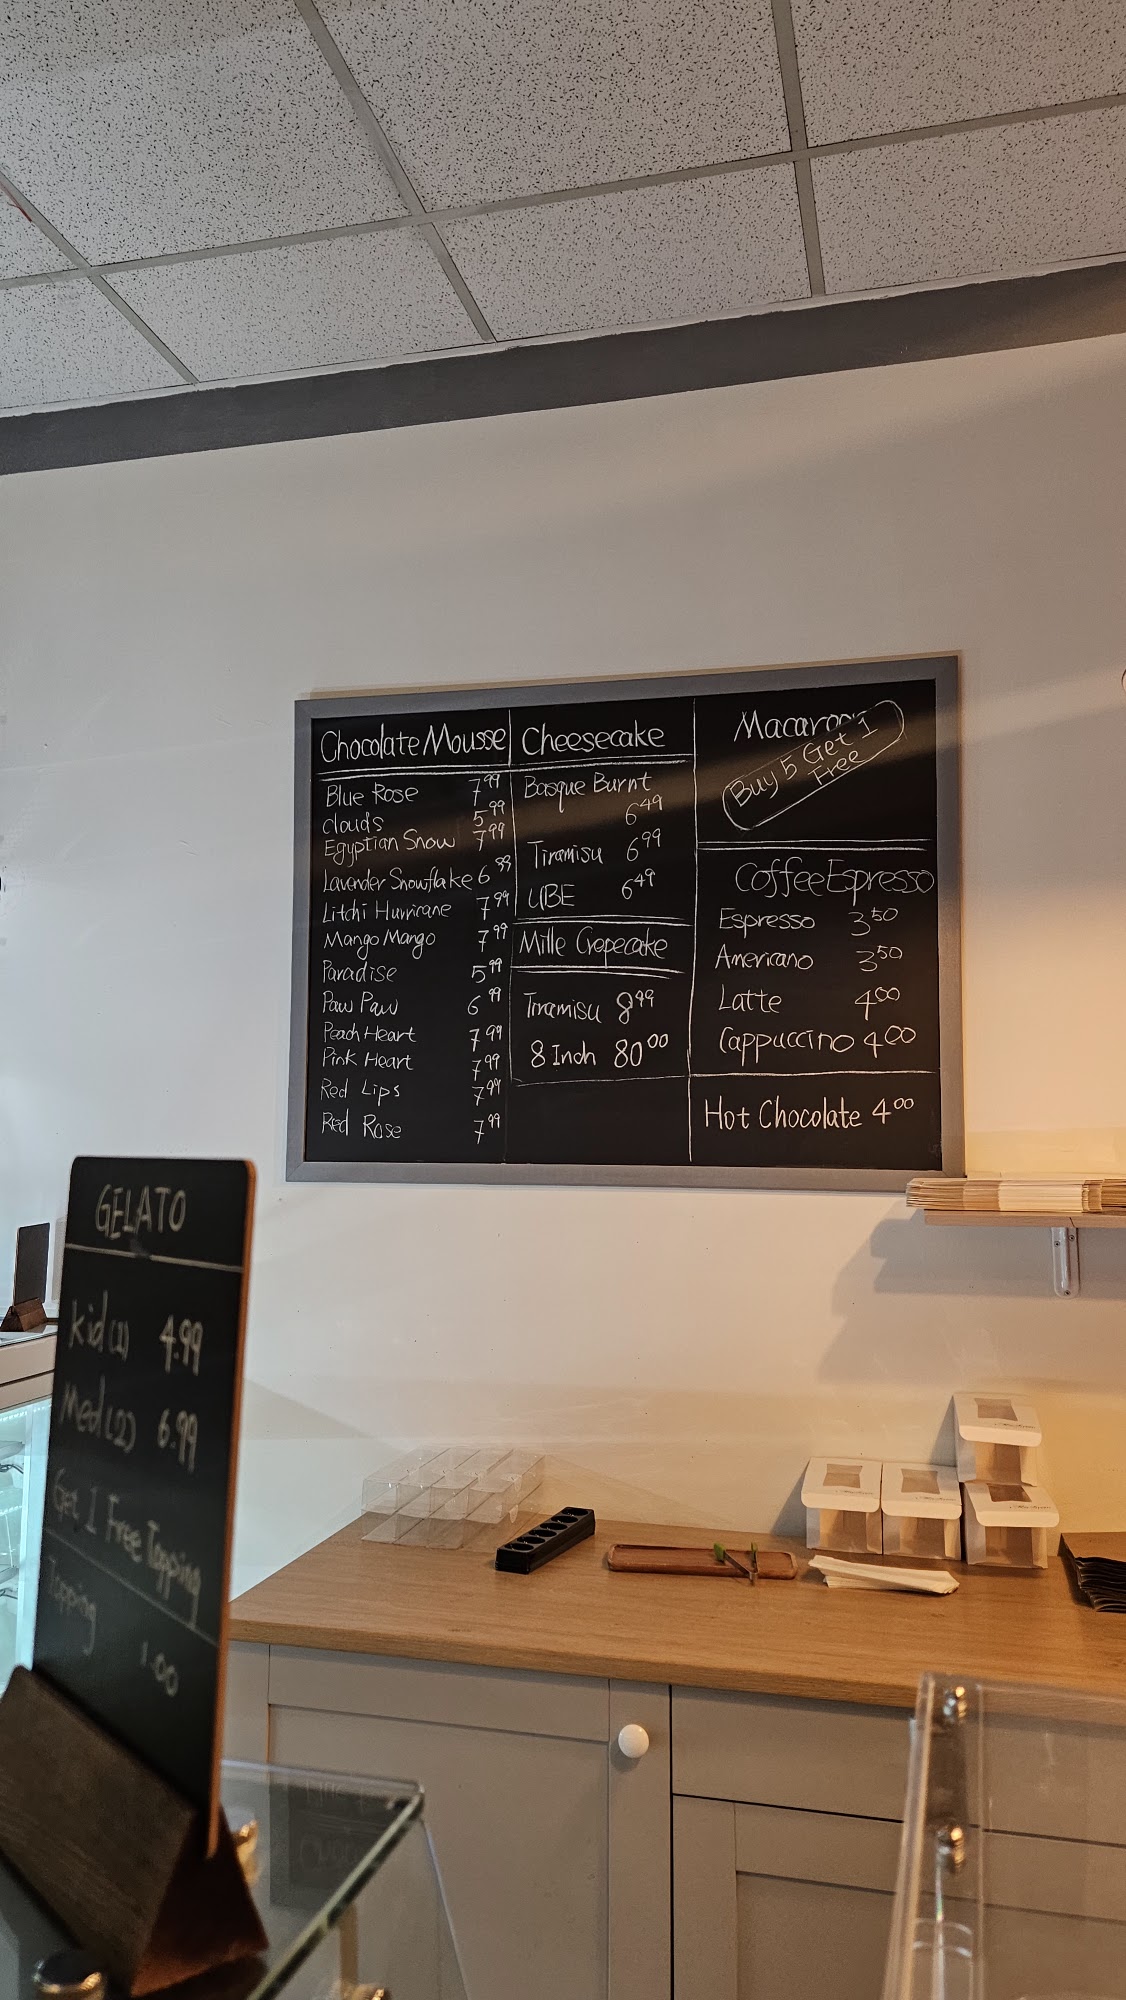 Chocolate Mousse
Blue Rose 7.99
Clouds 5.99
Egyptian Snow 7.99
Lavender Snowflake 6.99
Litchi Hurricane 7.99
Mango Mango 7.99
Paradise 5.99
Paw Paw 6.99
Peach Heart 7.99
Pink Heart 7.99
Red Lips 7.99
Red Rose 7.99
Cheesecake
Basque Burnt
6.49
Tiramisu 6.99
UBE 6.49
Mille Crepecake
Tiramisu 8.49
8 Inch 80.00
Buy 5 Get 1
Free
Coffee Espresso
Espresso 3.50
Americano 3.50
Latte 4.00
Cappuccino 4.00
Hot Chocolate 4.00
GELATO
Kid(1) 4.99
Med(2) 6.99
Get 1 Free Topping
Topping
1.00